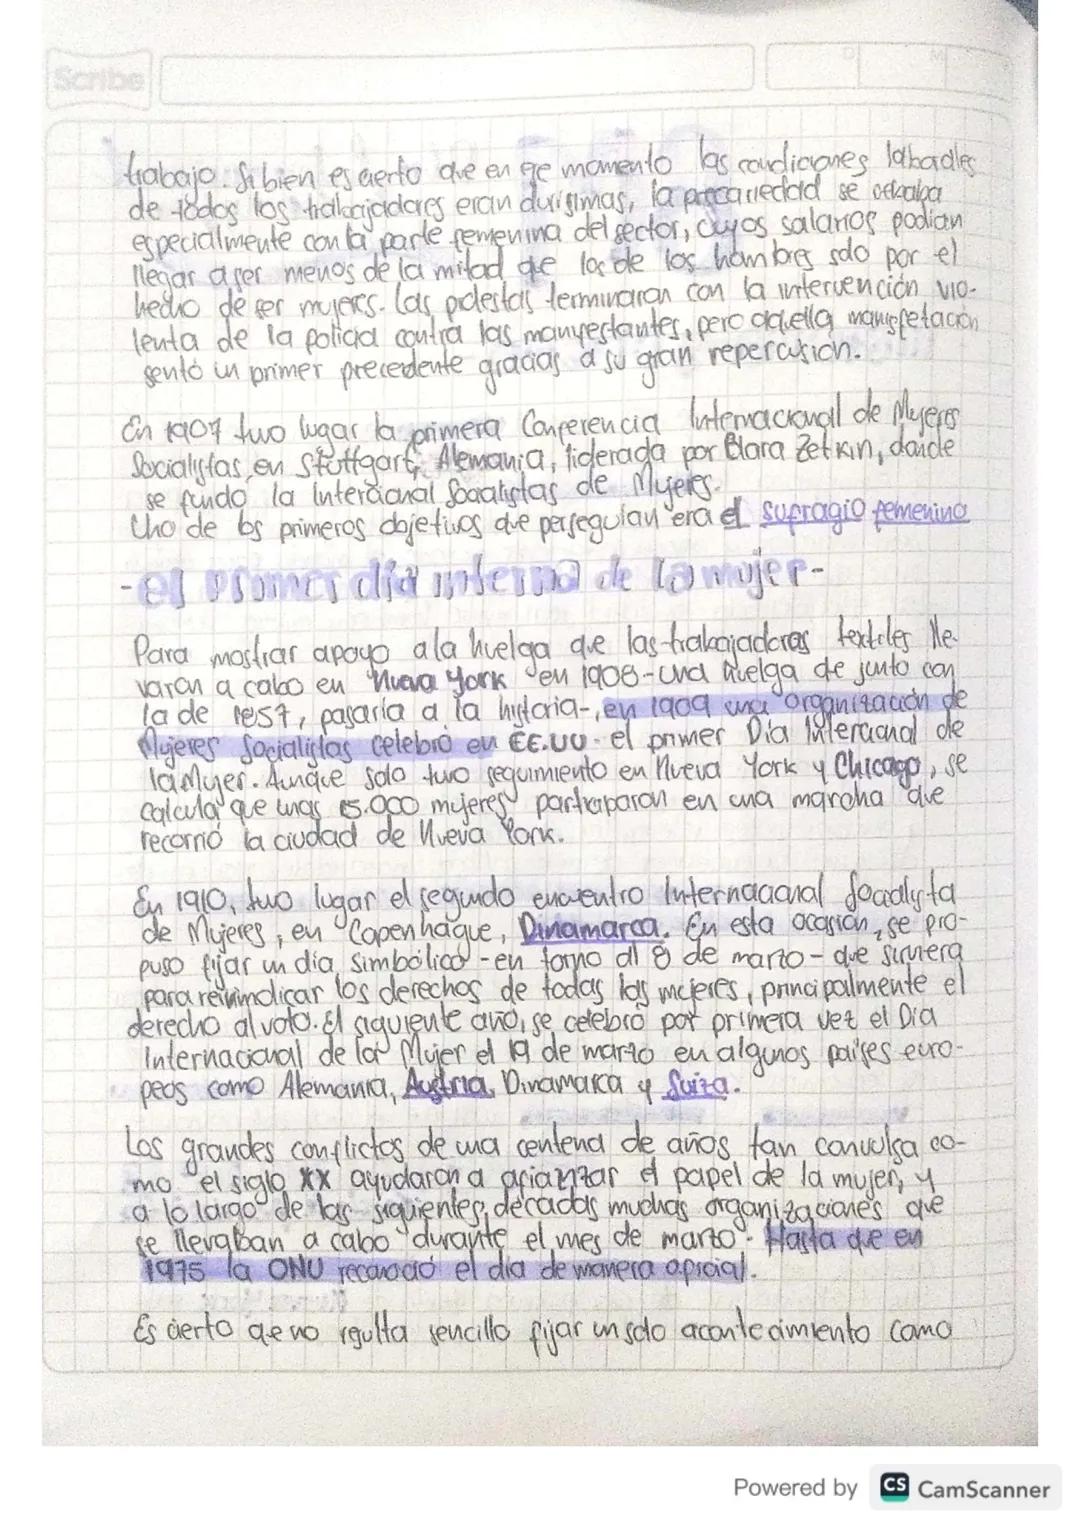 Scribe
D
M
trabajo. Si bien es cierto que en ese momento las condiciones laboadles
de todos los trabajadores eran durisimas, la precariedad se cebaba
especialmente con la parte femenina del sector, cuyos salarios podian
llegar a ser menos de la mitad que los de los hombres solo por el
hecho de ser mujeres. Las protestas terminaron con la intervención vio-
lenta de la policia contra las manifestantes, pero aquella manisfetación
sentó un primer precedente gracias a su gran repercusion.
En 1907 tuvo lugar la primera Conferencia Internacional de Mujeres
Socialistas en Stuttgart, Alemania, liderada por Clara Zetkin, donde
se fundo la Interacional Socialistas de Mujeres.
Uno de los primeros objetivos que perseguian era el sufragio femenino
-el primer día interna de la mujer-
Para mostrar apoyo a la huelga que las trabajadoras textiles lle-
varon a cabo en Nueva York en 1908-una huelga que junto con
la de 1857, pasaria a la historia-, en 1909 una organización de
Mujeres Socialistas celebró en EE.UU. el primer Día Interacional de
la Mujer. Aunque solo tuvo seguimiento en Nueva York y Chicago, se
calcula que unas 15.000 mujeres participaron en una marcha que
recorrió la ciudad de Nueva York.
En 1910, tuvo lugar el segundo encuentro Internacional Socialista
de Mujeres, en Copenhague, Dinamarca. En esta ocasión, se pro-
puso fijar un día simbólico -en torno al 8 de marzo- que sirviera
para reivindicar los derechos de todas las mujeres, principalmente el
derecho al voto. El siguiente año, se celebró por primera vez el Día
Internacional de la Mujer el 19 de marzo en algunos países euro-
peos como Alemania, Austria, Dinamarca y Suiza.
Los grandes conflictos de una centena de años tan convulsa co-
mo el siglo XX ayudaron a afianzar el papel de la mujer, y
a lo largo de las siguientes décadas muchas organizaciones que
se llevaban a cabo durante el mes de marzo. Hasta que en
1975 la ONU reconoció el día de manera oficial.
Es cierto que no resulta sencillo fijar un solo acontecimiento como
Powered by CS CamScanner